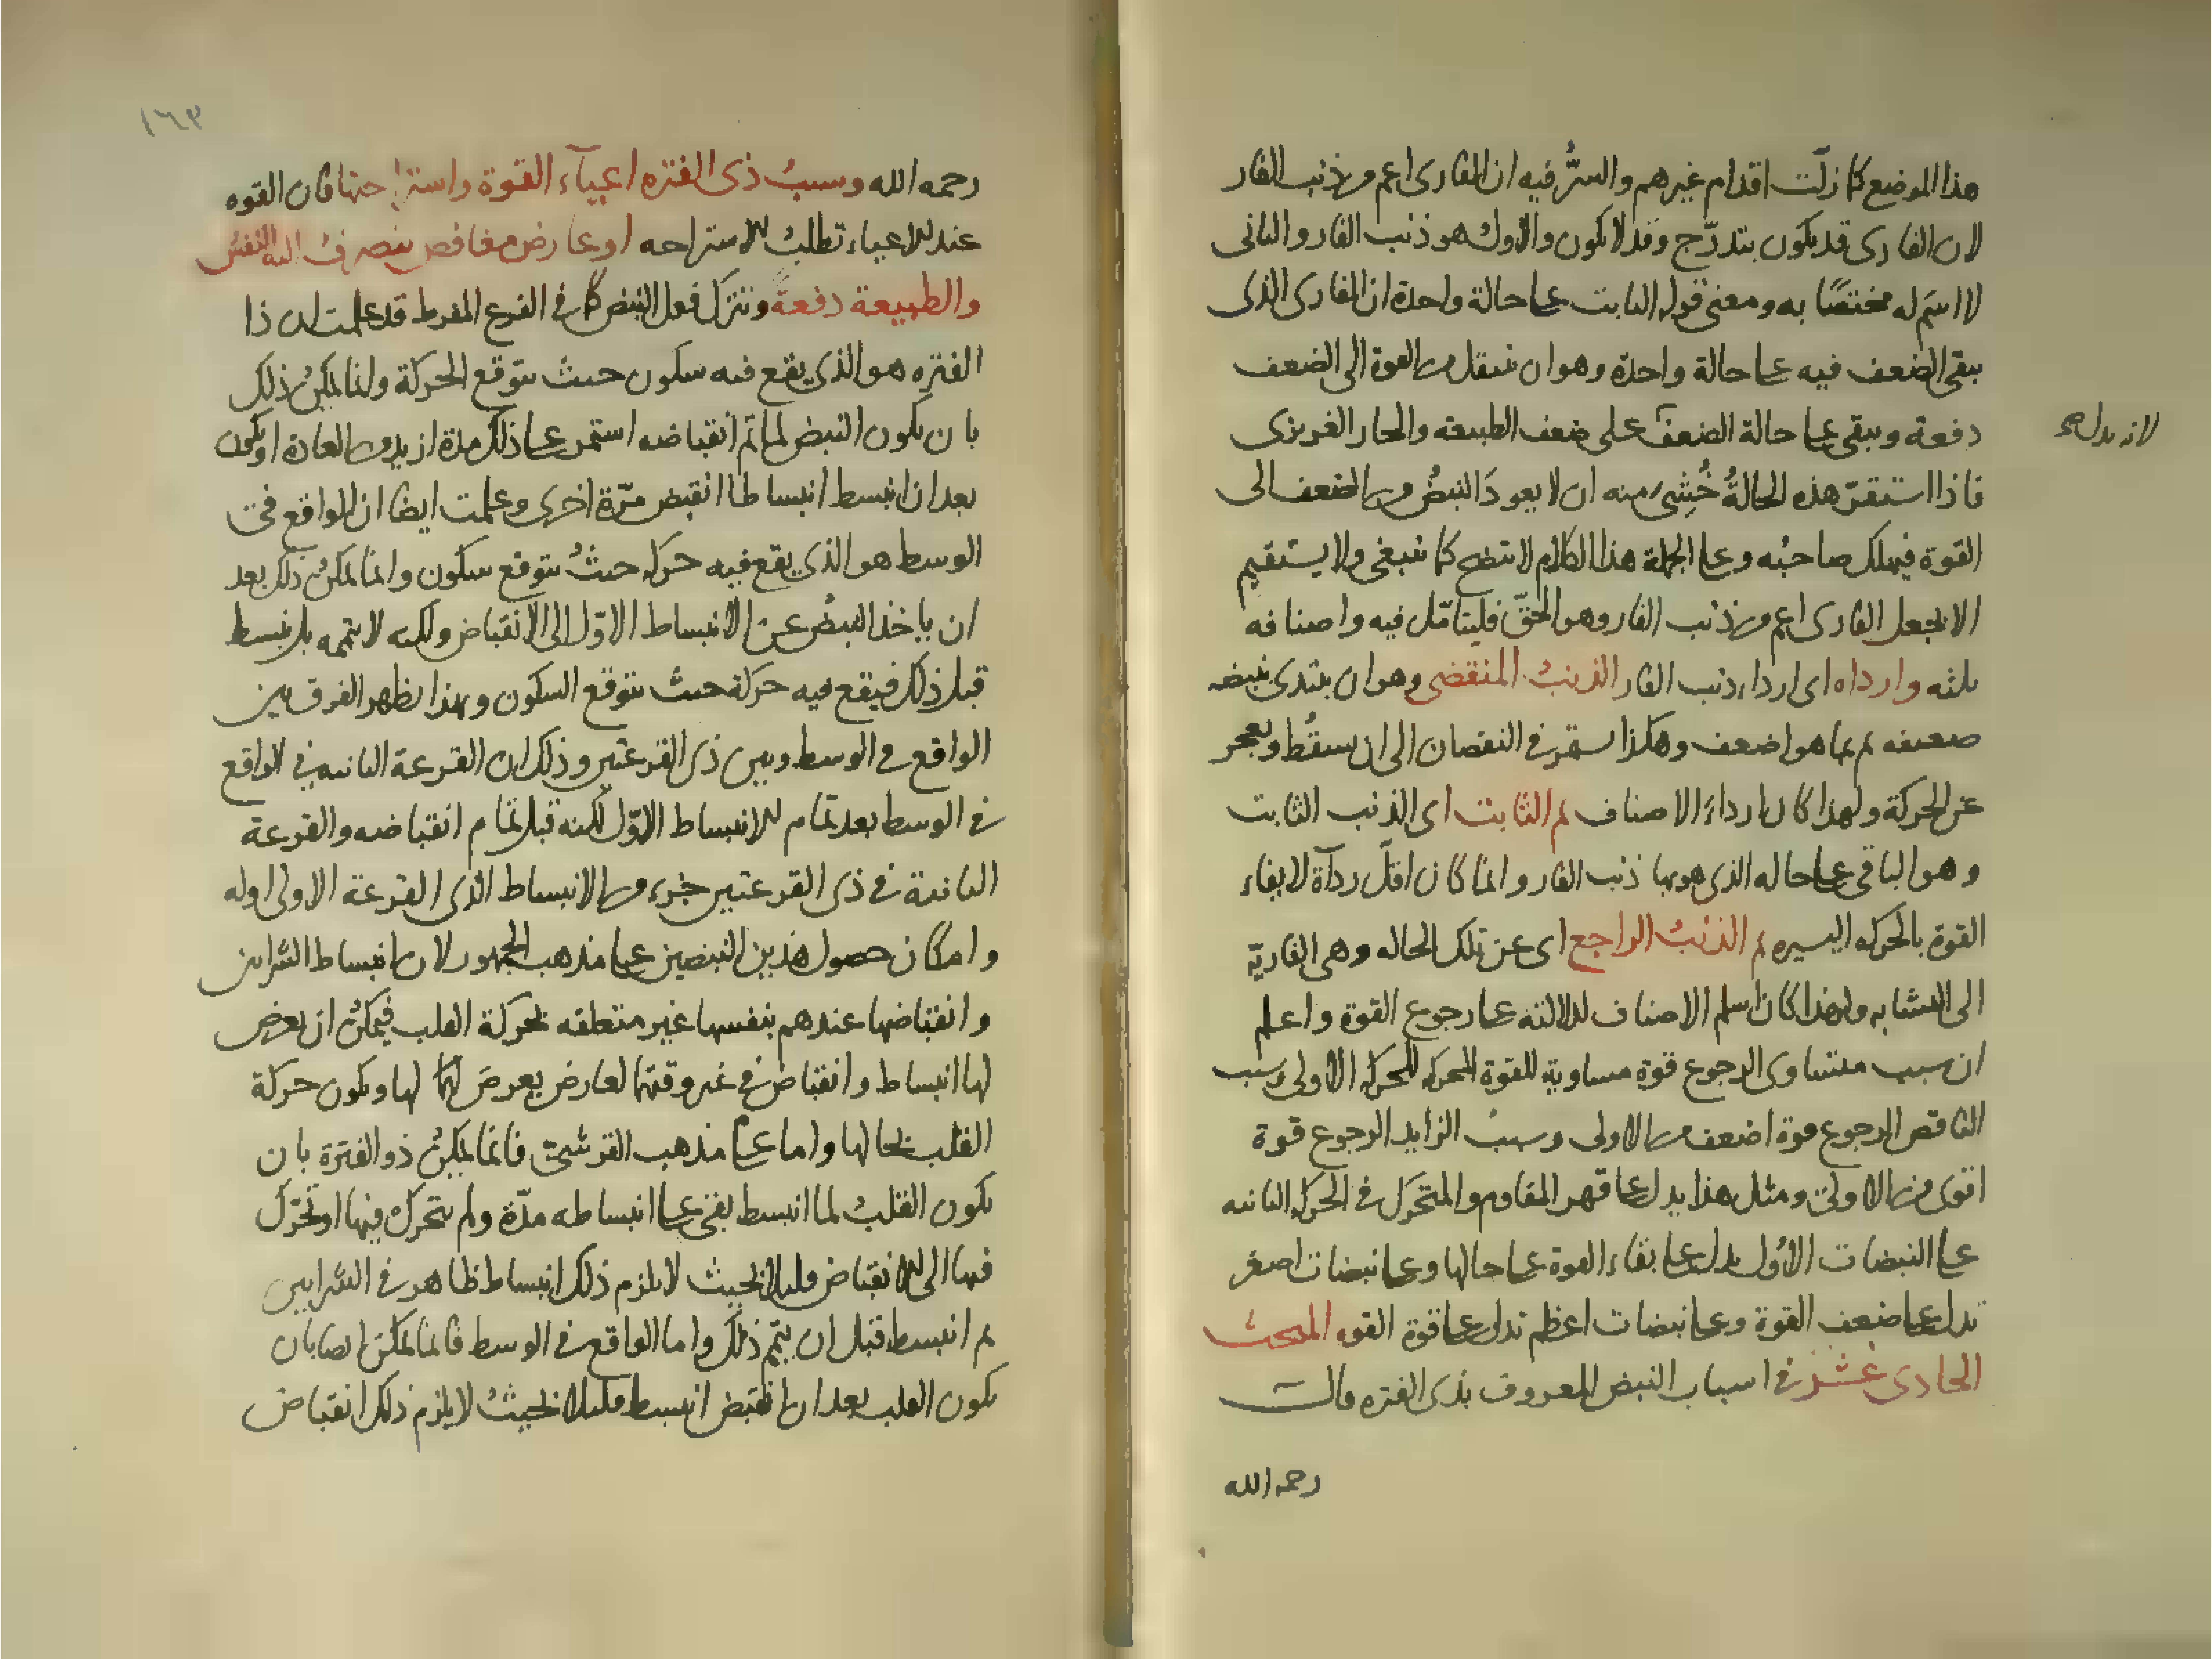 هذا الموضع كما زلّت اقدام غيرهم والسرُّ فيه ان الفارى اعم من ذنب الفار
لان الفارى قد يكون بتدرّج وقد لا يكون والاول هو ذنب الفار والثانى
لا اسم له مختصًا به ومعنى قوله الثابت على حالة واحدة ان الفارى الذى
يبقى الضعف فيه على حالة واحدة وهو ان ينتقل من القوة الى الضعف
دفعة ويبقى على حالة الضعف على ضعف الطبيعة والحار الغريزى
لانه يدل
فاذا استقرّ هذه الحالةُ خُشِىَ منه ان لا يعودَ النبضُ من الضعف الى
القوة فيهلك صاحبُه وعلى الجملة هذا الكلام لا يتضح كما ينبغى ولا يستقيم
الا بجعل الفارى اعم من ذنب الفار وهو الحقّ فليتأمّل فيه واصنافه
ثلثه وارداه اى اردا ذنب الفار الذنبُ المنقضى وهو ان يبتدى بنبضه
ضعيفه ثم بما هو اضعف وهكذا يستمر فى النقصان الى ان يسقُط ويعجز
عن الحركة ولهذا كان ارداءَ الاصناف ثم الثابت اى الذنب الثابت
وهو الباقى على حاله الذى هو بها ذنب الفار وانما كان اقلّ رداآة لابقاء
القوة بالحركه اليسيره ثم الذنبُ الراجع اى عن تلك الحاله وهى الفاريّة
الى التشابه ولهذا كان اسلم الاصناف لدلالته على رجوع القوة واعلم
ان سبب متساوى الرجوع قوة مساوية للقوة المحركه للحركه الاولى وسبب
الناقص الرجوع قوة اضعف من الاولى وسببُ الزايد الرجوع قوة
اقوى من الاولى ومثل هذا يدل على قهر المقاوم والمتحرك فى الحركه الثانيه
على النبضات الاُول يدل على بقاء القوة على حالها وعلى نبضات اصغر
تدل على ضعف القوة وعلى نبضات اعظم تدل على قوة القوه المبحث
الحادى عشر فى اسباب النبض المعروف بذى الفتره قالـ
رحمه الله
١٦٣
رحمه الله وسببُ ذى الفتره اعيآء القوة واستراحتها فان القوه
عند الاعياء تطلبُ الاستراحه او عارض مغافص ينصرفُ اليه النفسُ
والطبيعة دفعةً وتترك فعل النبض كما فى الفزع المفرط قد علمت ان ذا
الفتره هو الذى يقع فيه سكون حيث يتوقع الحركة وانما يمكنُ ذلك
بان يكون النبض لما تم انقباضه استمر على ذلك مدة ازيد من العادة او يكون
بعد ان انبسط انبساطا انقبض مرّة اخرى وعلمت ايضا ان الواقع فى
الوسط هو الذى يقع فيه حركه حيثُ يتوقع سكون وانما يمكنُ ذلك بعد
ان ياخذ النبضُ عن الانبساط الاوّل الى الانقباض ولكنه لا يتمه بل ينبسط
قبل ذلك فيقع فيه حركة حيث يتوقع السكون وبهذا يظهر الفرق بين
الواقع فى الوسط وبين ذى القرعتين وذلك ان القرعة الثانيه فى الواقع
فى الوسط بعد تمام الانبساط الاوّل لكنه قبل تمام انقباضه والقرعة
الثانية فى ذى القرعتين جزء من الانبساط الذى القرعة الاولى اوله
وامكان حصول هذين النبضين على مذهب الجمهور لان انبساط الشرايين
وانقباضها عندهم بنفسها غير متعلقه بحركة القلب فيمكنُ ان يعرض
لها انبساط وانقباض فى غير وقتهما لعارض يعرضَ لها ويكون حركة
القلب بحالها واما على مذهب القرشى فانما يمكنُ ذو الفترة بان
يكون القلبُ لما انبسط بقى على انبساطه مدّة ولم يتحرك فيها او تحرّك
فيها الى الانقباض قليلا بحيث لا يلزم ذلك انبساط ظاهر فى الشرايين
ثم انبسط قبل ان يتمّ ذلك واما الواقع فى الوسط فانما يمكن ايضا بان
يكون القلب بعد ان انقبض انبسط قليلا بحيثُ لا يلزم ذلك انقباض